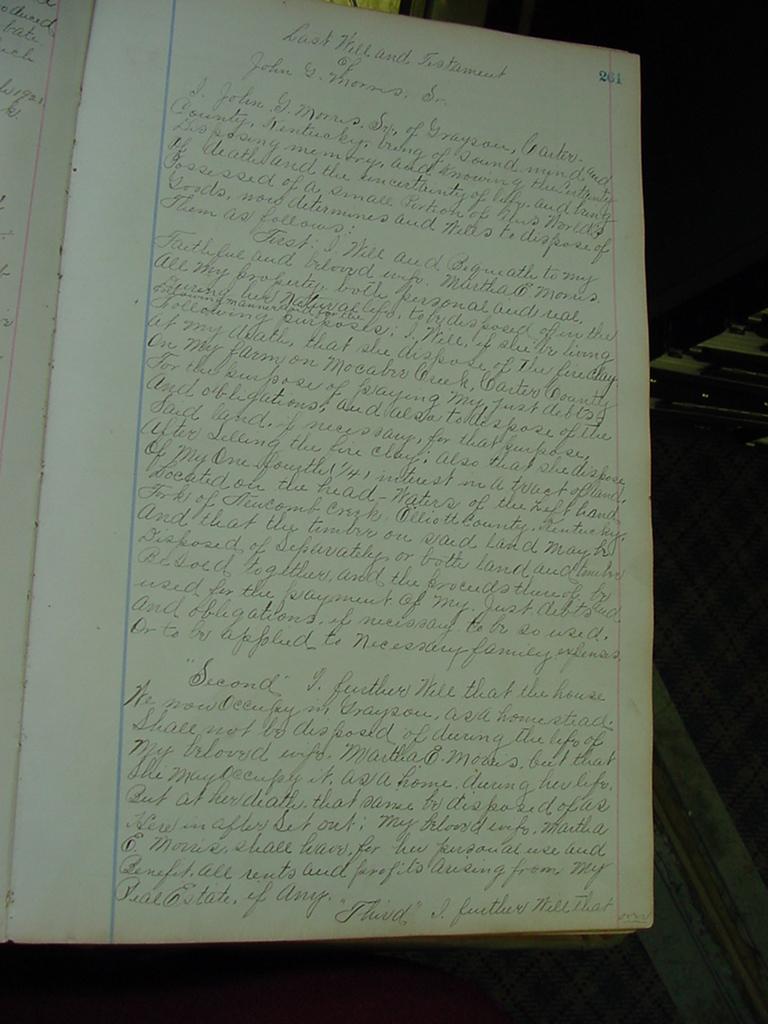 oduced
bate
uch
1921
261
Last Will and Testament
Of
John G. Morris, Sr.
I, John G Morris, Sr, of Grayson, Carter
County, Kentucky, being of sound mind and
Disposing memory, and knowing the certainty
Of death and the uncertainty of life, and being
Possessed of a small Portion of this World's
Goods, now determines and Wills to dispose of
Them as follows:
First: I Will and Bequeath to my
Faithful and beloved wife, Martha E Morris,
All My Property, both personal and real,
During her Natural life, to be disposed of in the
following manner and for the
Following purposes: I Will, if she be living
At my death, that she dispose of The fire clay
On My farm on Mocabee Creek, Carter County
For the purpose of paying My just debts
And obligations, and also to dispose of the
Said land, if necessary, for that purpose,
After Selling the fire clay; also that she dispose
Of My One-fourth (1/4) interest in a tract of land
Located on the head-Waters of the Left hand
Fork of Newcomb Creek, Elliott County, Kentucky,
And that the timber on said Land May be
Disposed of Separately, or both land and timber
Be sold together, and the proceeds thereof be
used for the payment of My Just debts and
And obligations, if necessary to be so used,
Or to be applied to Necessary family expenses.
"Second" I further Will that the house
We now Occupy in Grayson, as a homestead,
Shall not be disposed of during the life of
My beloved wife, Martha E. Morris, but that
She May Occupy it, as a home, during her life,
But at her death, that same be disposed of as
Here in after Set out; My beloved wife, Martha
E. Morris, shall have, for her personal use and
Benefit, all rents and profits arising from My
Real Estate, if Any.
"Third" I further Will that